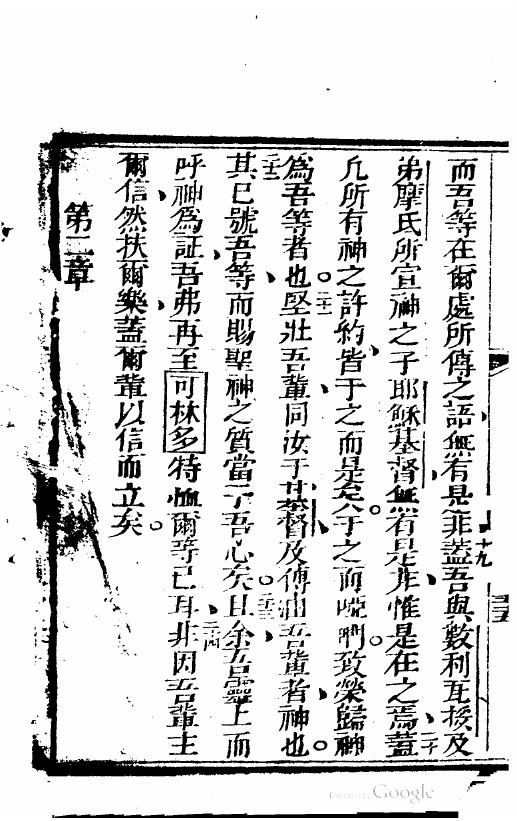 而吾等在爾處所傳之語無有是非蓋吾與數利瓦挨及
十九
弟摩氏所宣神之子耶穌基督無有是非惟是在之焉蓋
二十
凡所有神之許約皆于之而是矣于之而啞們致榮歸神
為吾等者也
二十一
堅壯吾輩同汝于基督及傅油吾輩者神也
二十二
其已號吾等而賜聖神之質當于吾心矣
二十三
且余吾靈上而
呼神為証吾弗再至可林多特恤爾等已耳
二十四
非因吾輩主
爾信然扶爾樂蓋爾輩以信而立矣
第二章
Digitized by Google